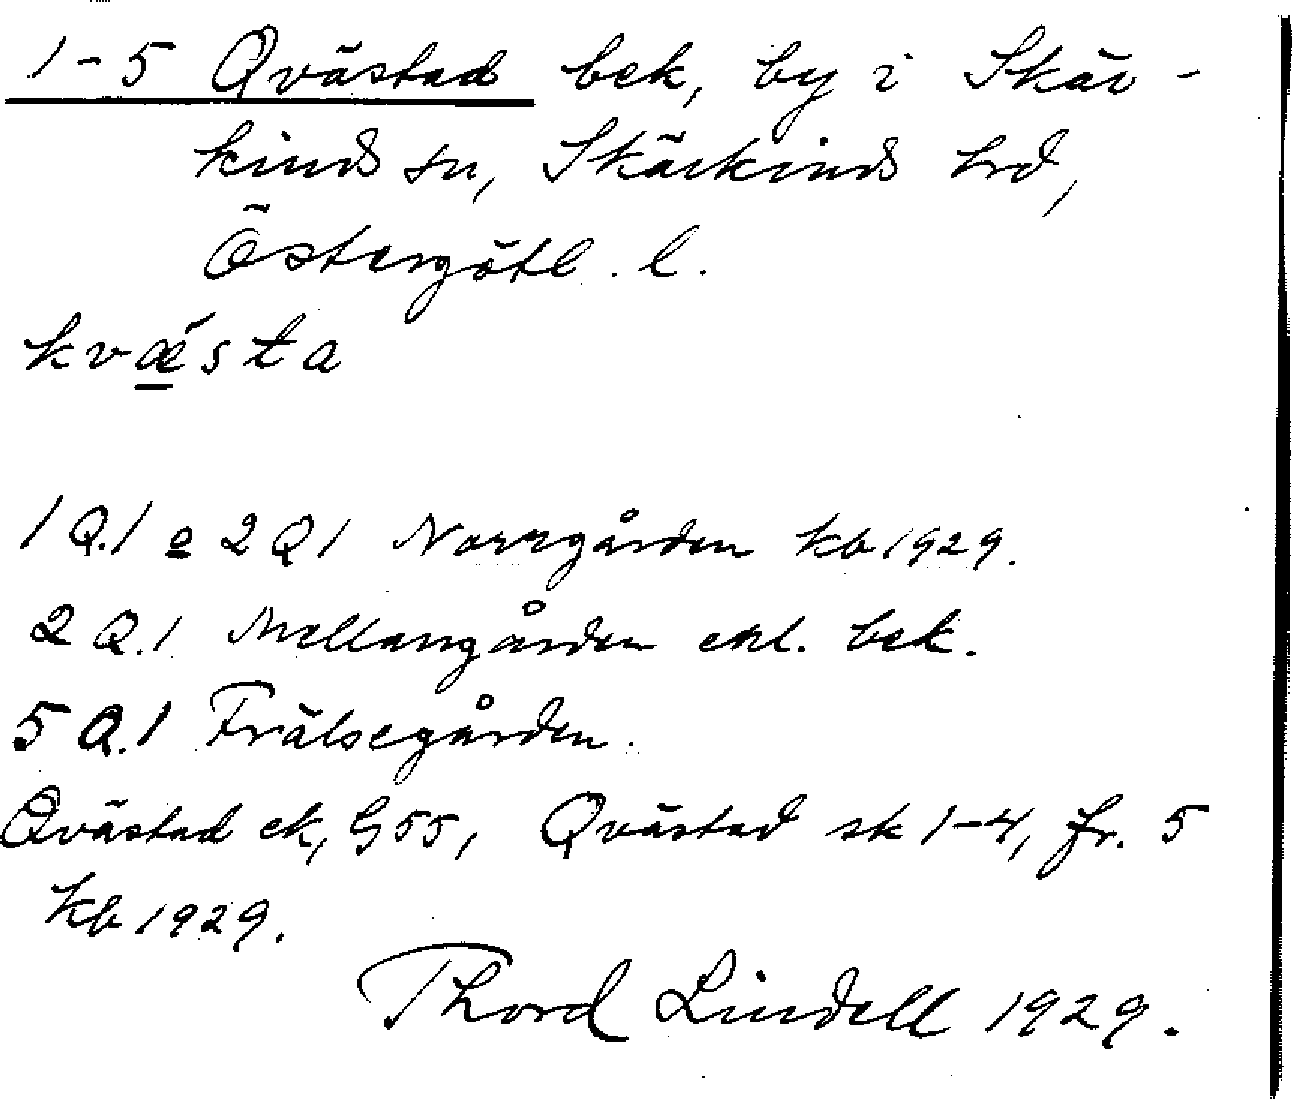 1-5 Qvästad bek, by i Skär-
kinds sn, Skärkinds hrd,
Östergötl. l.
kvǽsta
1 Q.1 o 2 Q 1 Norrgården kb 1929.
2 Q.1 Mellangården enl. bek.
5 Q.1 Frälsegården.
Qvästad ek, G55, Qvästad sk 1-4, fr. 5
kb 1929.
Thord Lindell 1929.